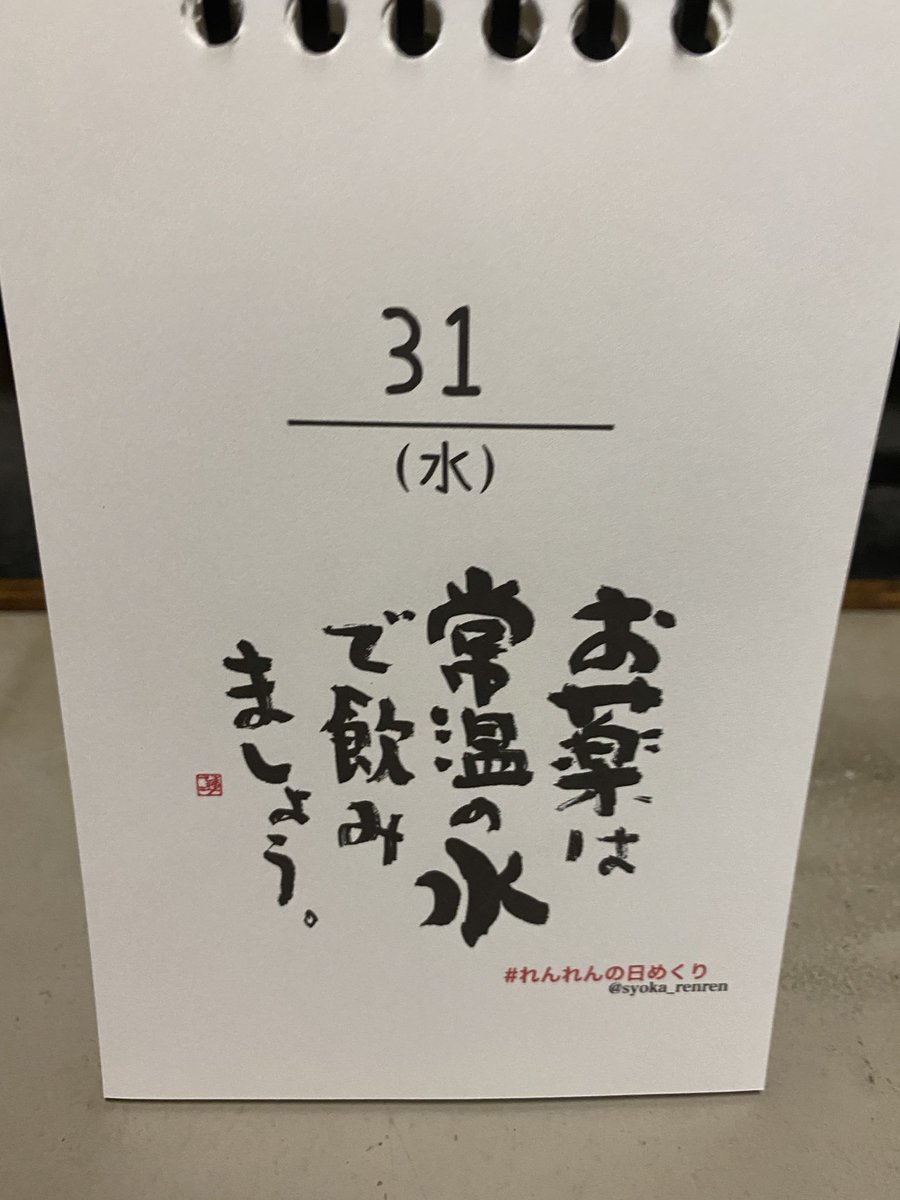 31
(水)
お薬は
常温の水
で飲み
ましょう。
#れんれんの日めくり
@syoka_renren